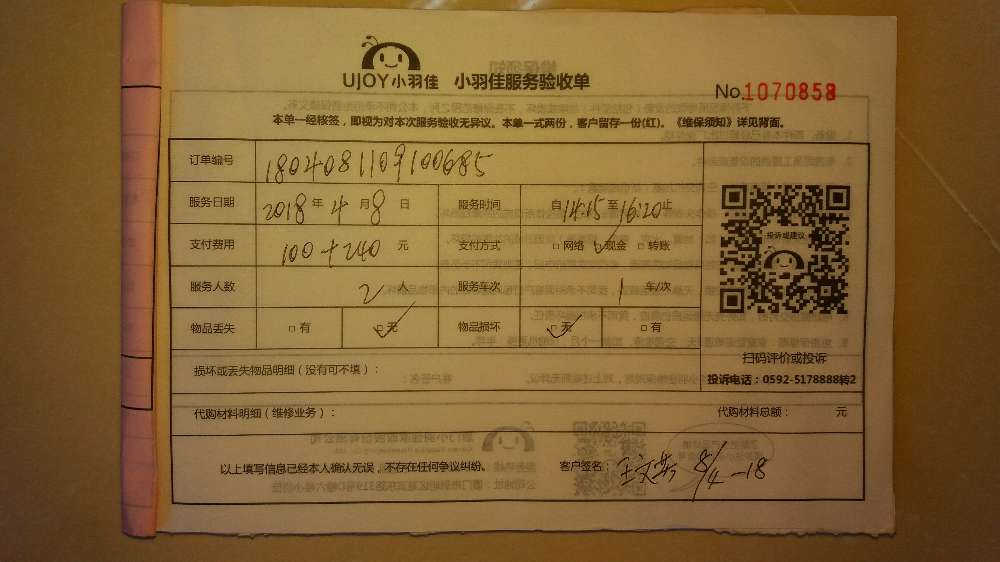 UJOY小羽佳 小羽佳服务验收单
No.1070858
本单一经核签，即视为对本次服务验收无异议。本单一式两份，客户留存一份(红)。《维保须知》详见背面。
订单编号 1804081109100685
服务日期 2018年4月8日 服务时间 自14:15至16:20止
支付费用 100+240元 支付方式 □网络 □现金 □转账
服务人数 2人 服务车次 1车/次
物品丢失 □有 □无 物品损坏 □无 □有
投诉或建议
扫码评价或投诉
损坏或丢失物品明细（没有可不填）：
投诉电话：0592-5178888转2
代购材料明细（维修业务）： 代购材料总额： 元
以上填写信息已经本人确认无误，不存在任何争议纠纷。 客户签名：王文 8/4-18